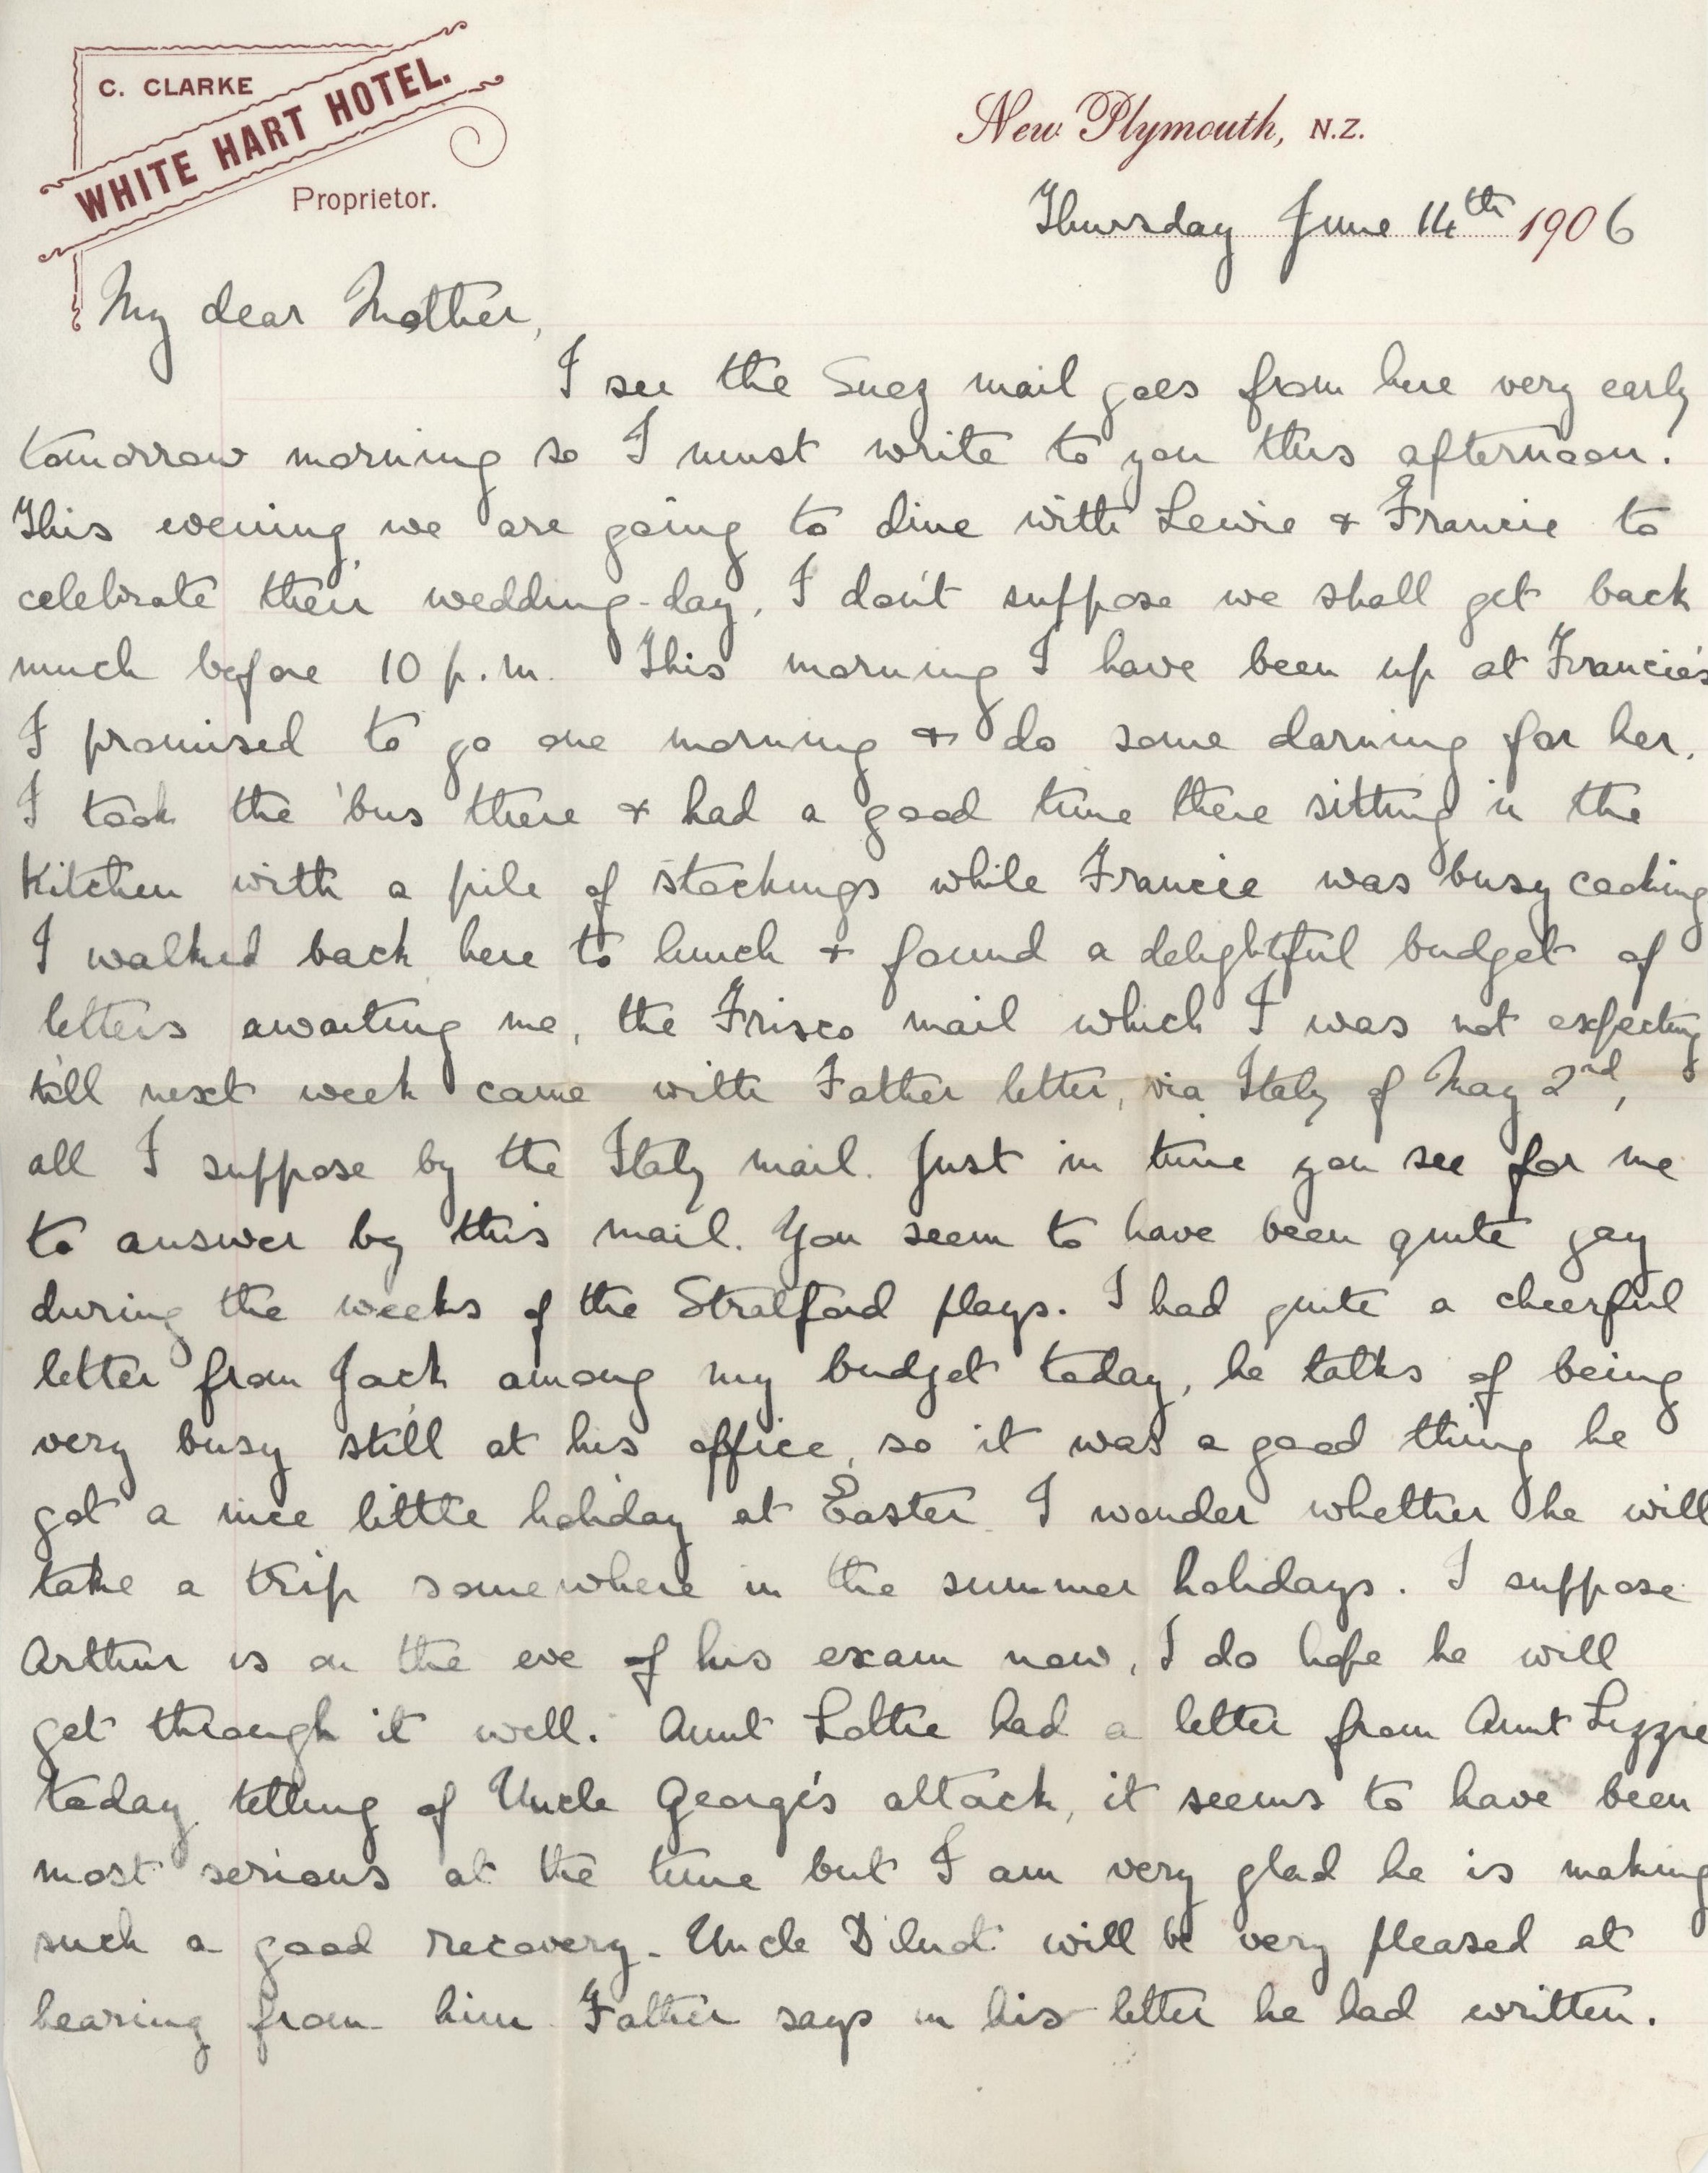 C. CLARKE
WHITE HART HOTEL.
Proprietor.
New Plymouth, N.Z.
Thursday June 14th 1906
My dear Mother,
I see the Suez mail goes from here very early
tomorrow morning so I must write to you this afternoon.
This evening we are going to dine with Lewie & Francie to
celebrate their wedding-day, I don't suppose we shall get back
much before 10 p.m. This morning I have been up at Francie's
I promised to go one morning & do some darning for her.
I took the 'bus there & had a good time there sitting in the
Kitchen with a pile of stockings while Francie was busy cooking
I walked back here to lunch & found a delightful budget of
letters awaiting me, the Frisco mail which I was not expecting
till next week came with Father letter, via Italy of May 2nd,
all I suppose by the Italy mail. Just in time you see for me
to answer by this mail. You seem to have been quite gay
during the weeks of the Stratford plays. I had quite a cheerful
letter from Jack among my budget today, he talks of being
very busy still at his office, so it was a good thing he
got a nice little holiday at Easter I wonder whether he will
take a trip somewhere in the summer holidays. I suppose
Arthur is on the eve of his exam now, I do hope he will
get through it well. Aunt Lottie had a letter from Aunt Lizzie
today telling of Uncle George's attack, it seems to have been
most serious at the time but I am very glad he is making
such a good recovery. Uncle will be very pleased at
hearing from him Father says in his letter he had written.